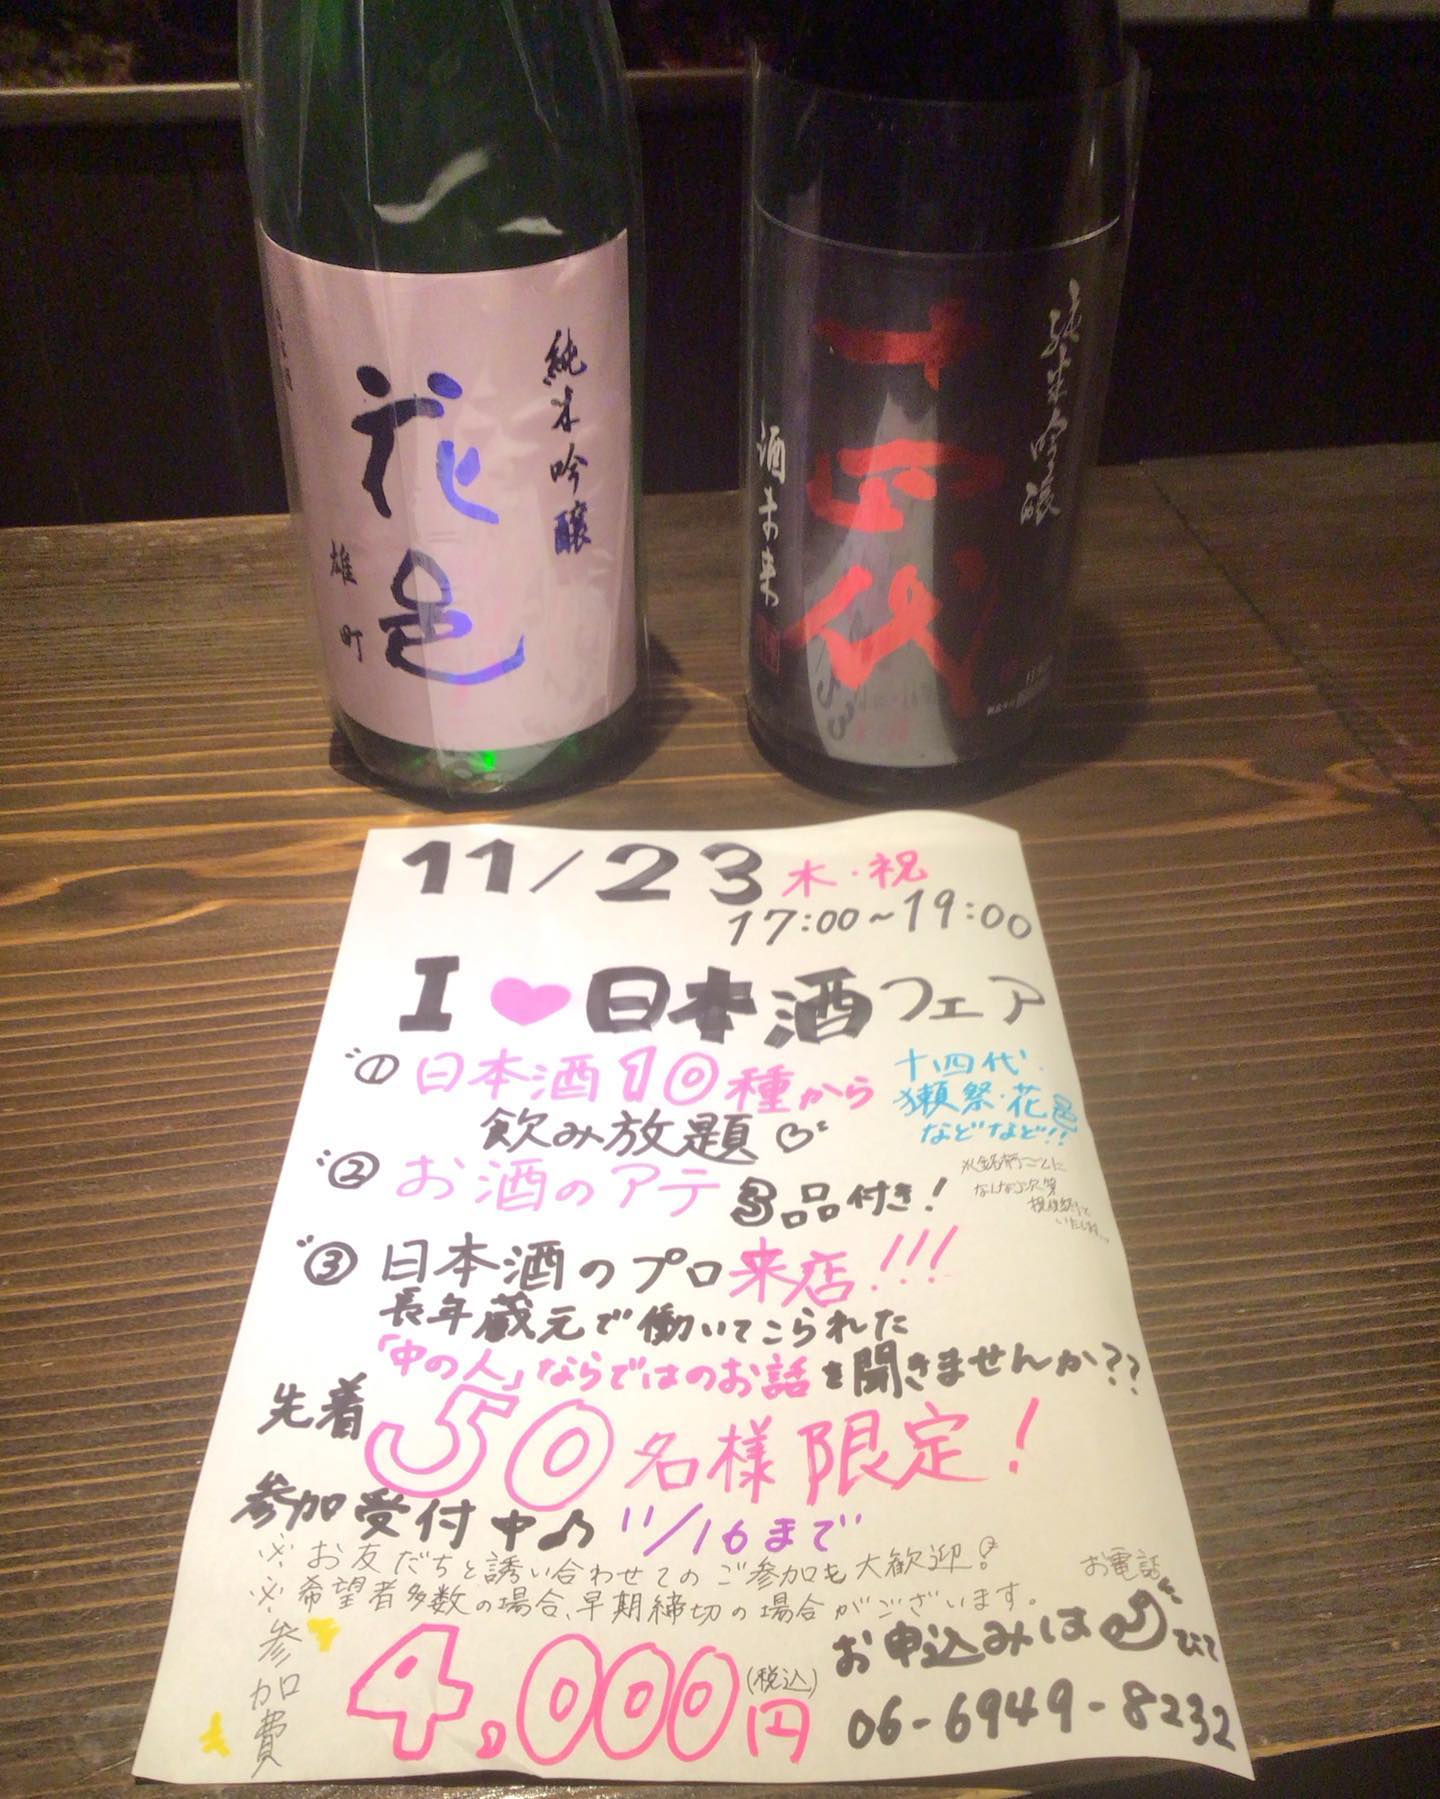 純米吟醸
花邑
雄町
純米吟醸
十四代
酒未来
11/23 木・祝
17:00~19:00
I ♥ 日本酒フェア
① 日本酒10種から
飲み放題♡
十四代・
獺祭・花邑
などなど!!
※銘柄ごとに
なくなり次第
提供終了と
いたします。
② お酒のアテ 3品付き!
③ 日本酒のプロ来店!!!
長年蔵元で働いてこられた
「中の人」ならではのお話を聞きませんか??
先着50名様限定!
参加受付中♪ 11/16まで
※お友だちと誘い合わせてのご参加も大歓迎!
※希望者多数の場合、早期締切の場合がございます。
参加費
4,000円(税込)
お電話
お申込みは にて
06-6949-8232